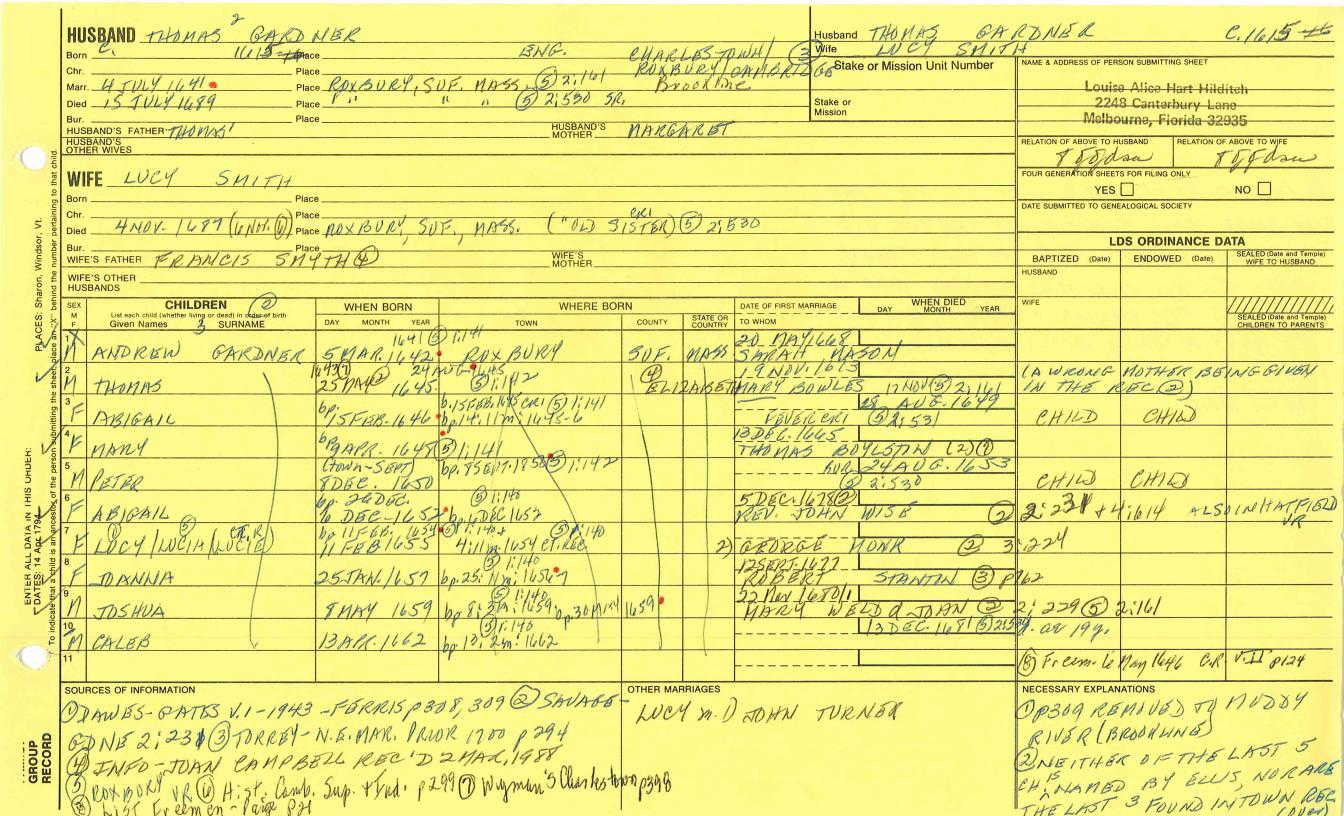 HUSBAND THOMAS 2 GARDNER
Born C. 1615 Place ENG. CHARLESTOWN/ (3)
Chr. Place ROXBURY/CAMBRIDGE
Marr. 4 JULY 1641 Place ROXBURY, SUF. MASS. (5) 2:161 Brookline
Died 15 JULY 1689 Place " " " " (5) 2:530 SR.
Bur. Place
HUSBAND'S FATHER THOMAS' HUSBAND'S MOTHER MARGARET
HUSBAND'S OTHER WIVES
Husband THOMAS GARDNER C.1615
Wife LUCY SMITH
Stake or Mission Unit Number
Stake or Mission
NAME & ADDRESS OF PERSON SUBMITTING SHEET
Louise Alice Hart Hilditch
2248 Canterbury Lane
Melbourne, Florida 32935
RELATION OF ABOVE TO HUSBAND RELATION OF ABOVE TO WIFE
FOUR GENERATION SHEETS FOR FILING ONLY
YES NO
DATE SUBMITTED TO GENEALOGICAL SOCIETY
WIFE LUCY SMITH
Born Place
Chr. Place
Died 4 NOV. 1687 (6 NH. (6)) Place ROXBURY, SUF., MASS. ("OLD SISTER) CRI (5) 2:530
Bur. Place
WIFE'S FATHER FRANCIS SMYTH (4) WIFE'S MOTHER
WIFE'S OTHER HUSBANDS
LDS ORDINANCE DATA
BAPTIZED (Date) ENDOWED (Date) SEALED (Date and Temple) WIFE TO HUSBAND
HUSBAND
WIFE
SEALED (Date and Temple) CHILDREN TO PARENTS
SEX M F
CHILDREN (2)
List each child (whether living or dead) in order of birth
Given Names 3 SURNAME
WHEN BORN
DAY MONTH YEAR
WHERE BORN
TOWN COUNTY STATE OR COUNTRY
DATE OF FIRST MARRIAGE
TO WHOM
WHEN DIED
DAY MONTH YEAR
1 1641 (5) 1:141 20 MAY 1668
M ANDREW GARDNER 5 MAR. 1642 ROXBURY SUF. MASS SARAH MASON
2 24 AUG 1645 (4) 19 NOV. 1673 (A WRONG MOTHER BEING GIVEN
M THOMAS 25 MAY 1645 (5) 1:142 ELIZABETH MARY BOWLES 17 NOV (5) 2:161 IN THE REC (2))
3 bp. 15 FEB. 1645 CRI (5) 1:141 28 AUG. 1649
F ABIGAIL bp. 15 FEB. 1646 bp. 14:11m:1645-6 FEVER CRI (5) 2:531 CHILD CHILD
4 13 DEC. 1665
F MARY bp 9 APR. 1648 (5) 1:141 THOMAS BOYLSTIN (2) (7)
5 (TOWN-SEPT) bp. 8 SEPT. 1850 (5) 1:142 BUR. 24 AUG. 1653
M PETER 8 DEC. 1650 (2) 2:530 CHILD CHILD
6 bp. 26 DEC. (5) 1:140 5 DEC. 1678 (2)
F ABIGAIL 6 DEC - 1652 bp. 6 DEC 1652 REV. JOHN WISE (2) 2:231 + 4:614 ALSO IN HATFIELD VR
7 bp 11 FEB. 1654 (5) 1:140
F LUCY/LUCIH/LUCIE 11 FEB 1655 4:11m-1654 CT.REC 2) GEORGE MONK (2) 3:224
8 (5) 1:140 12 SEPT. 1677
F JOANNA 25 JAN. 1657 bp. 25:11m:1656-7 ROBERT STANTIN (3) p762
9 (5) 1:140 22 Nov 1680/1
M JOSHUA 8 MAY 1659 bp 8:3m:1659, bp. 30 May 1659 MARY WELD d JOHN (2) 2:229 (5) 2:161
10 (5) 1:140 13 DEC. 1681 (5) 2:530 19y.
M CALEB 13 APR. 1662 bp 13:2m:1662
11 (8) Freem. 6 May 1646 CR V.II p124
SOURCES OF INFORMATION
(1) DAWES-GATES V.1-1943 -FERRIS p308, 309 (2) SAVAGE-
GDNE 2:231 (3) TORREY-N.E. MAR. PRIOR 1700 p 294
(4) INFO-JOAN CAMPBELL REC'D 2 MAR, 1988
(5) ROXBURY VR (6) Hist. Camb. Sup. + Ind. p299 (7) Wyman's Charlestown p398
(8) List Freemen - Paige p21
OTHER MARRIAGES
LUCY m. 1) JOHN TURNER
NECESSARY EXPLANATIONS
(1) p309 REMOVED TO MUDDY
RIVER (BROOKLINE)
(2) NEITHER OF THE LAST 5
CH. IS NAMED BY ELLIS, NOR ARE
THE LAST 3 FOUND IN TOWN REC
(OVER)
PLACES: Sharon, Windsor, Vt.
ENTER ALL DATA IN THIS ORDER:
DATES: 14 Apr 1794
To indicate that a child is an ancestor of the person submitting the sheet, place an "X" behind the number pertaining to that child.
GROUP
RECORD